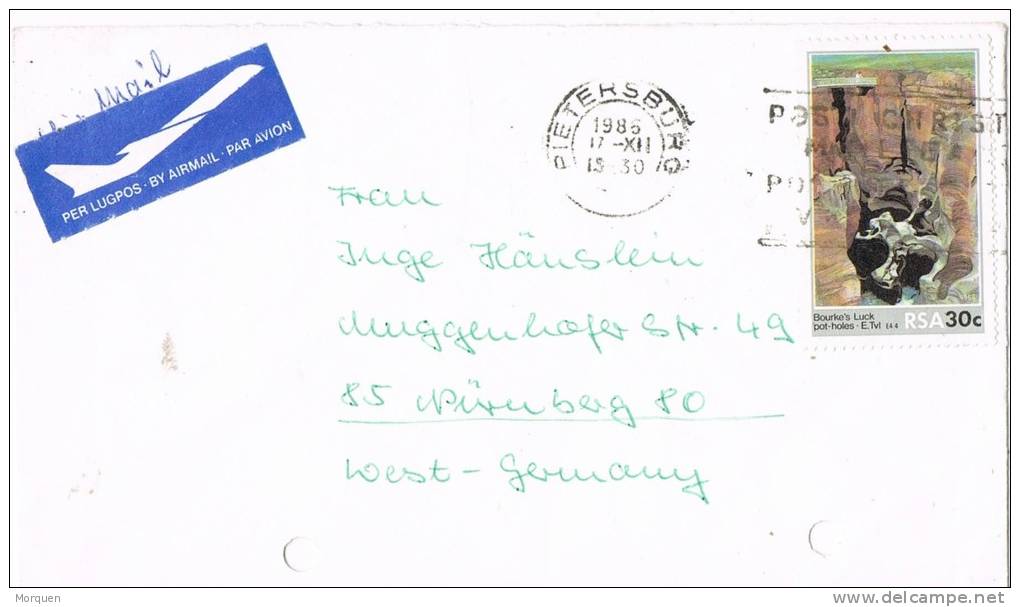 Air Mail
PER LUGPOS · BY AIRMAIL · PAR AVION
PIETERSBURG
1986
17 -XII
19 30
POST
Bourke's Luck
pot-holes · E.Tvl
RSA 30c
Frau
Inge Hänslein
Muggenhofer Str. 49
85 Nürnberg 80
West-Germany
Morquen
delcampe.net